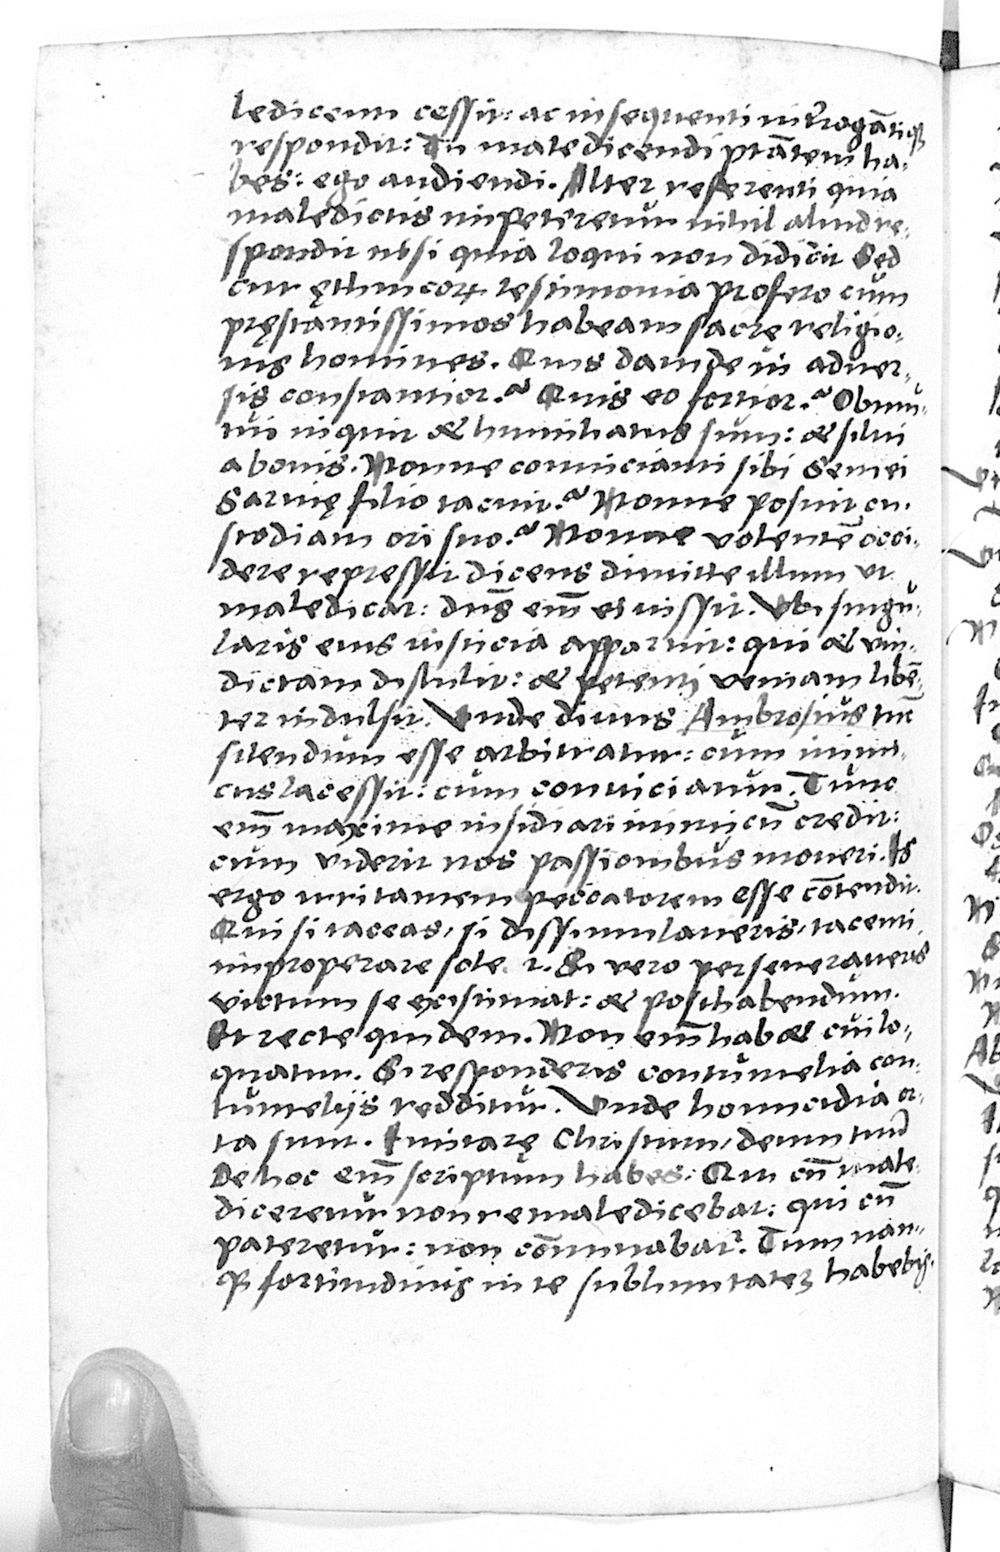 ledicenti cessit: ac insequenti int̄rogāti q̄
respondit: Tu maledicendi ptātem ha-
bes: ego audiendi. Alter referenti quia
maledictis impeteretur nihil aliud re-
spondit nisi quia loqui non didicit Sed
cur ęthnicoꝝ testimonia profero cum
pręstantissimos habeam sacrę religio-
nis homines. Quis dauide in aduer-
sis constantior? Quis eo fortior? Obmu-
tui inquit & humiliatus sum: & silui
a bonis. Nonne conuicianti sibi Semei
Saruię filio tacuit? Nonne posuit cu-
stodiam ori suo? Nonne volentē occi-
dere repressit dicens dimitte illum ut
maledicat: dn̄s em̄ ei iussit. Vbi singu-
laris eius iusticia apparuit: qui & vin-
dictam distulit: & petenti veniam libē-
ter indulsit. Vnde diuus Ambrosius tūc
silendum esse arbitratur: cum inimi-
cus lacessit: cum conuiciatur. Tunc
em̄ maxime insidiari inimicū credit:
cum viderit nos passionibus moueri. Is
ergo irritamem peccatorem esse cōtendit.
Qui si taceas, si dissimulaueris, tacenti
improperare sole. r. Si vero perseueraueris
victum se existimat: & posthabendum.
Et recte quidem. Non em̄ hab& cui lo-
quatur. Si responderis contumelia con-
tumelijs redditur. Vnde homicidia or-
ta sunt. Imitarę Christum, deum tuū
De hoc em̄ scriptum habes: Qui cū male-
diceretur non remaledicebat: qui cū
pateretur: non cōminabať. Tum nam-
q̄ fortitudinis in te sublimitateꝫ habebis.